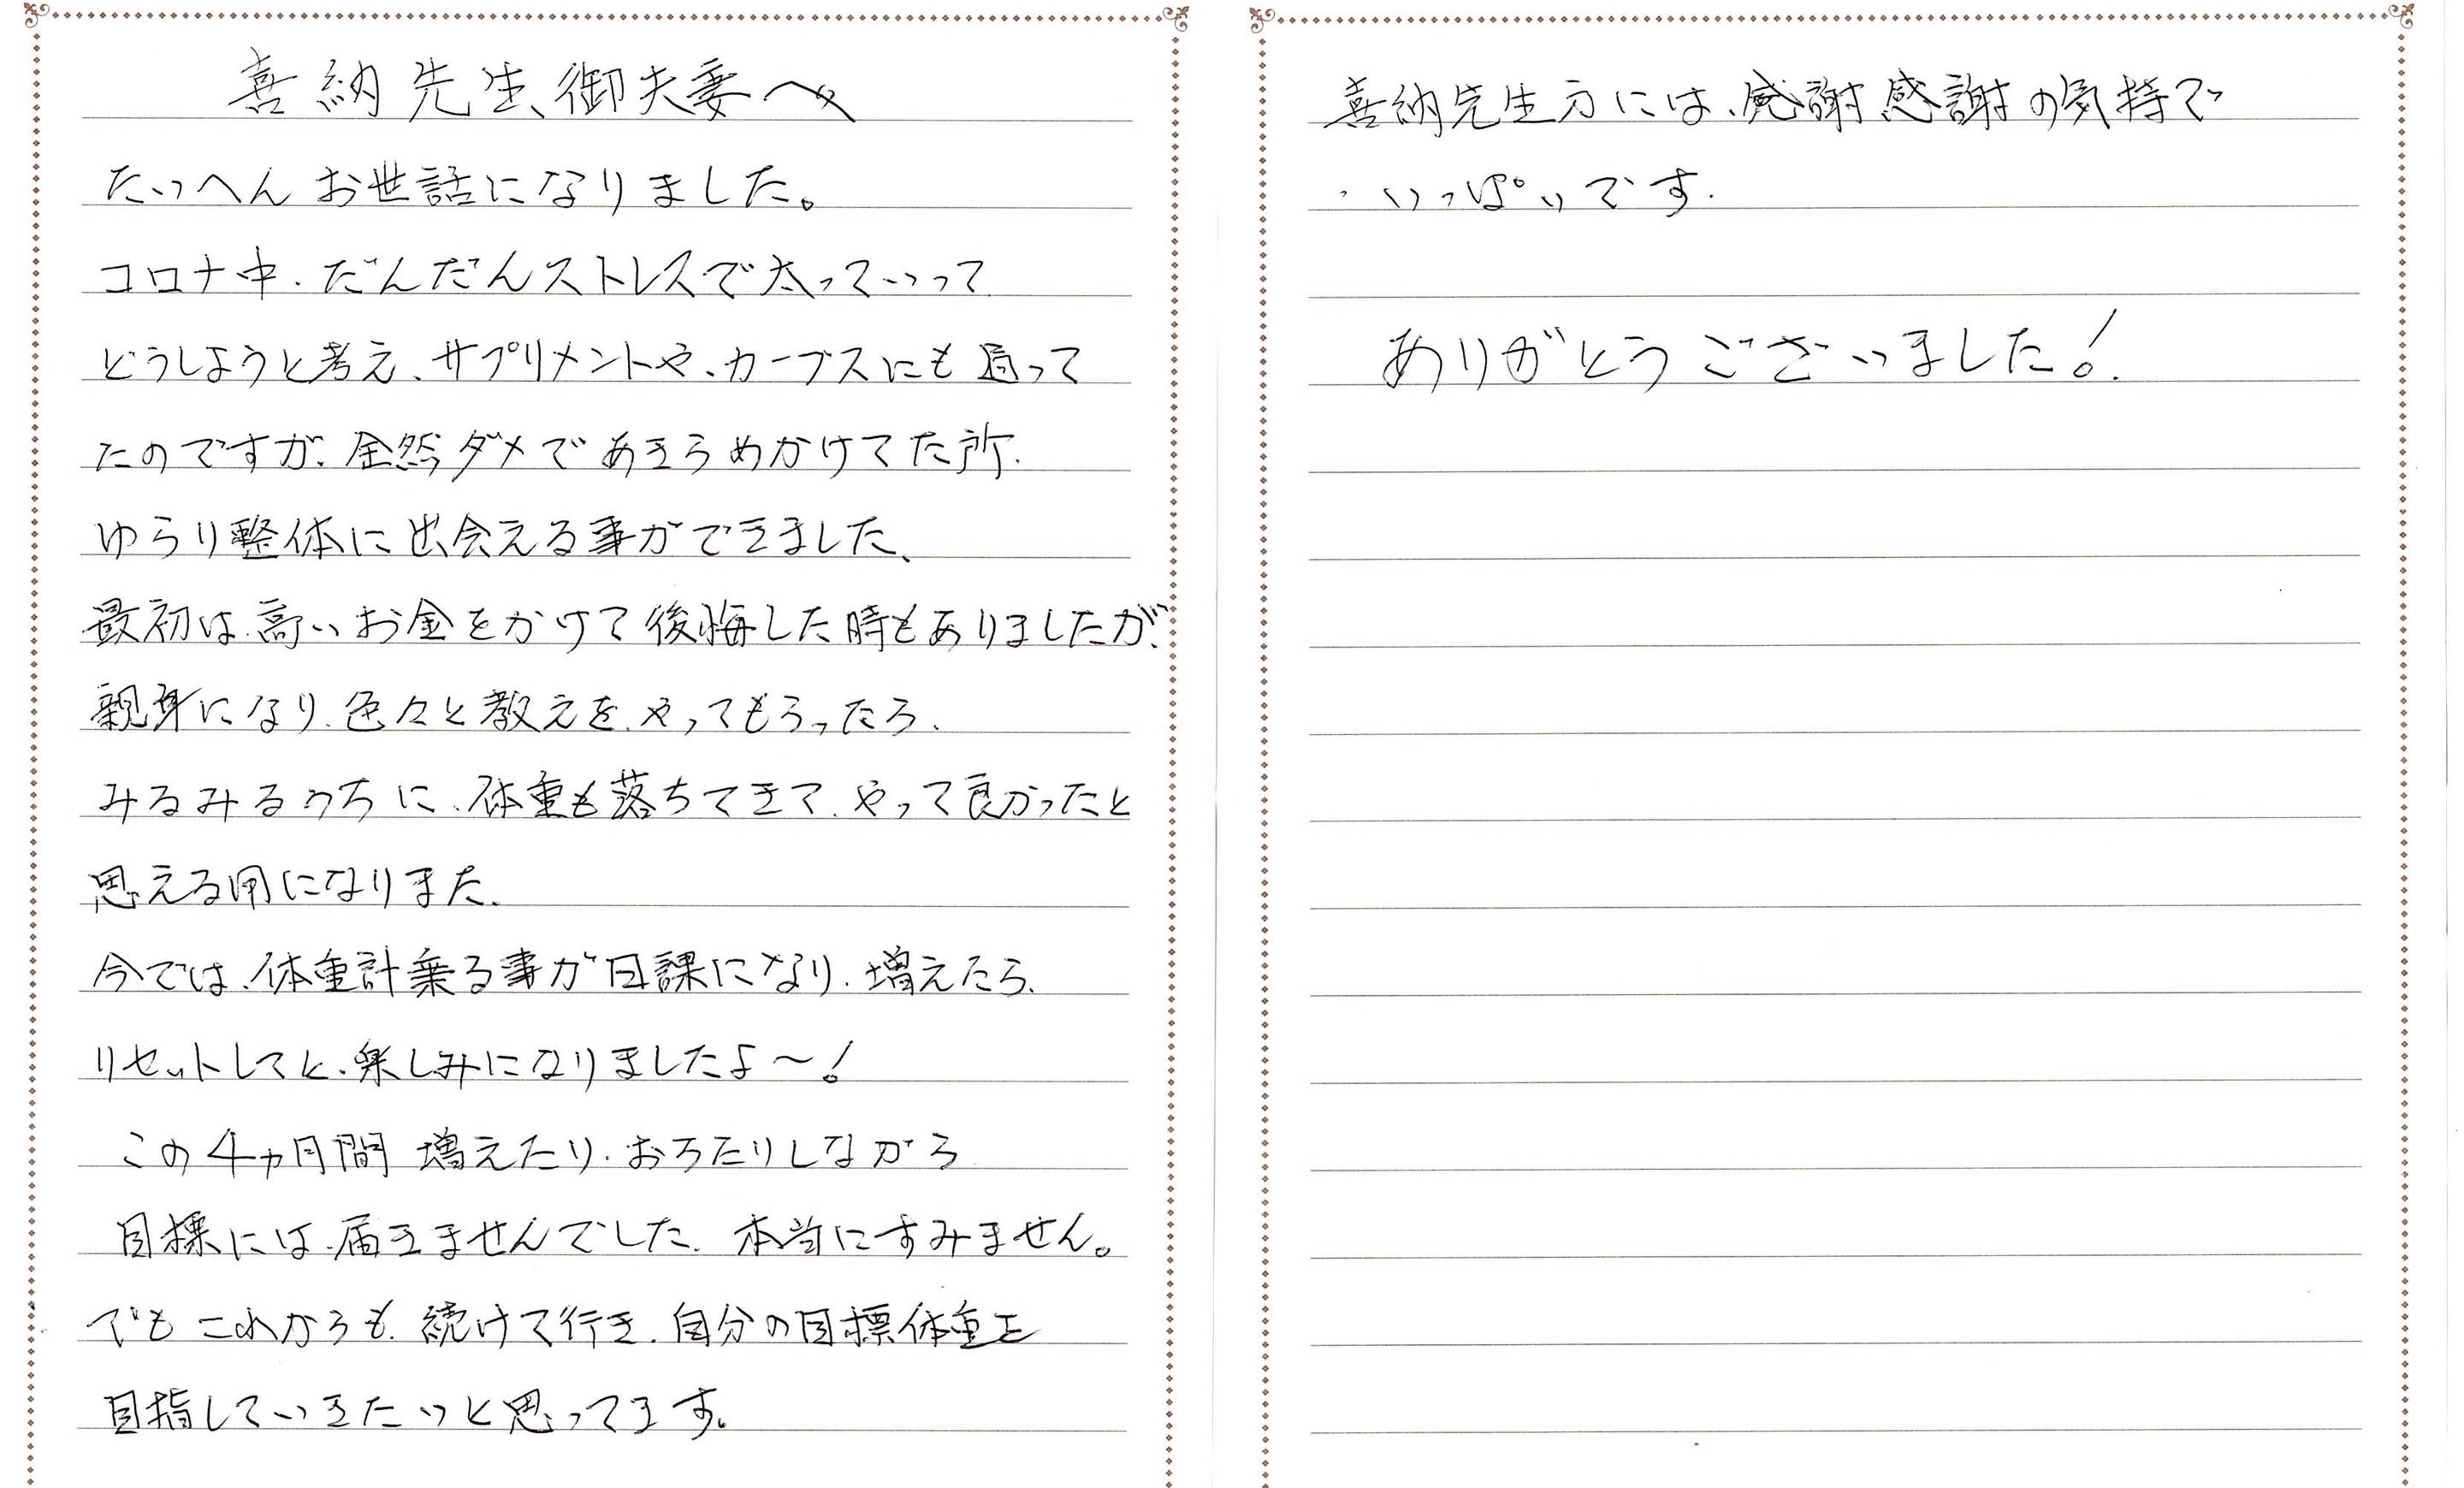 喜納先生、御夫妻へ
たいへんお世話になりました。
コロナ中、だんだんストレスで太っていって
どうしようと考え、サプリメントや、カーブスにも通って
たのですが、全然ダメであきらめかけてた所、
ゆらり整体に出会える事ができました、
最初は、高いお金をかけて後悔した時もありましたが、
親身になり、色々と教えを、やってもらったら、
みるみるうちに、体重も落ちてきて、やって良かったと
思える用になりまた、
今では、体重計乗る事が日課になり、増えたら、
リセットしてと、楽しみになりましたよ～！
この4ヵ月間 増えたり、おちたりしながら
目標には、届きませんでした、本当にすみません。
でもこれからも、続けて行き、自分の目標体重を
目指していきたいと思ってます。
喜納先生方には、感謝感謝の気持で
いっぱいです。
ありがとうございました！